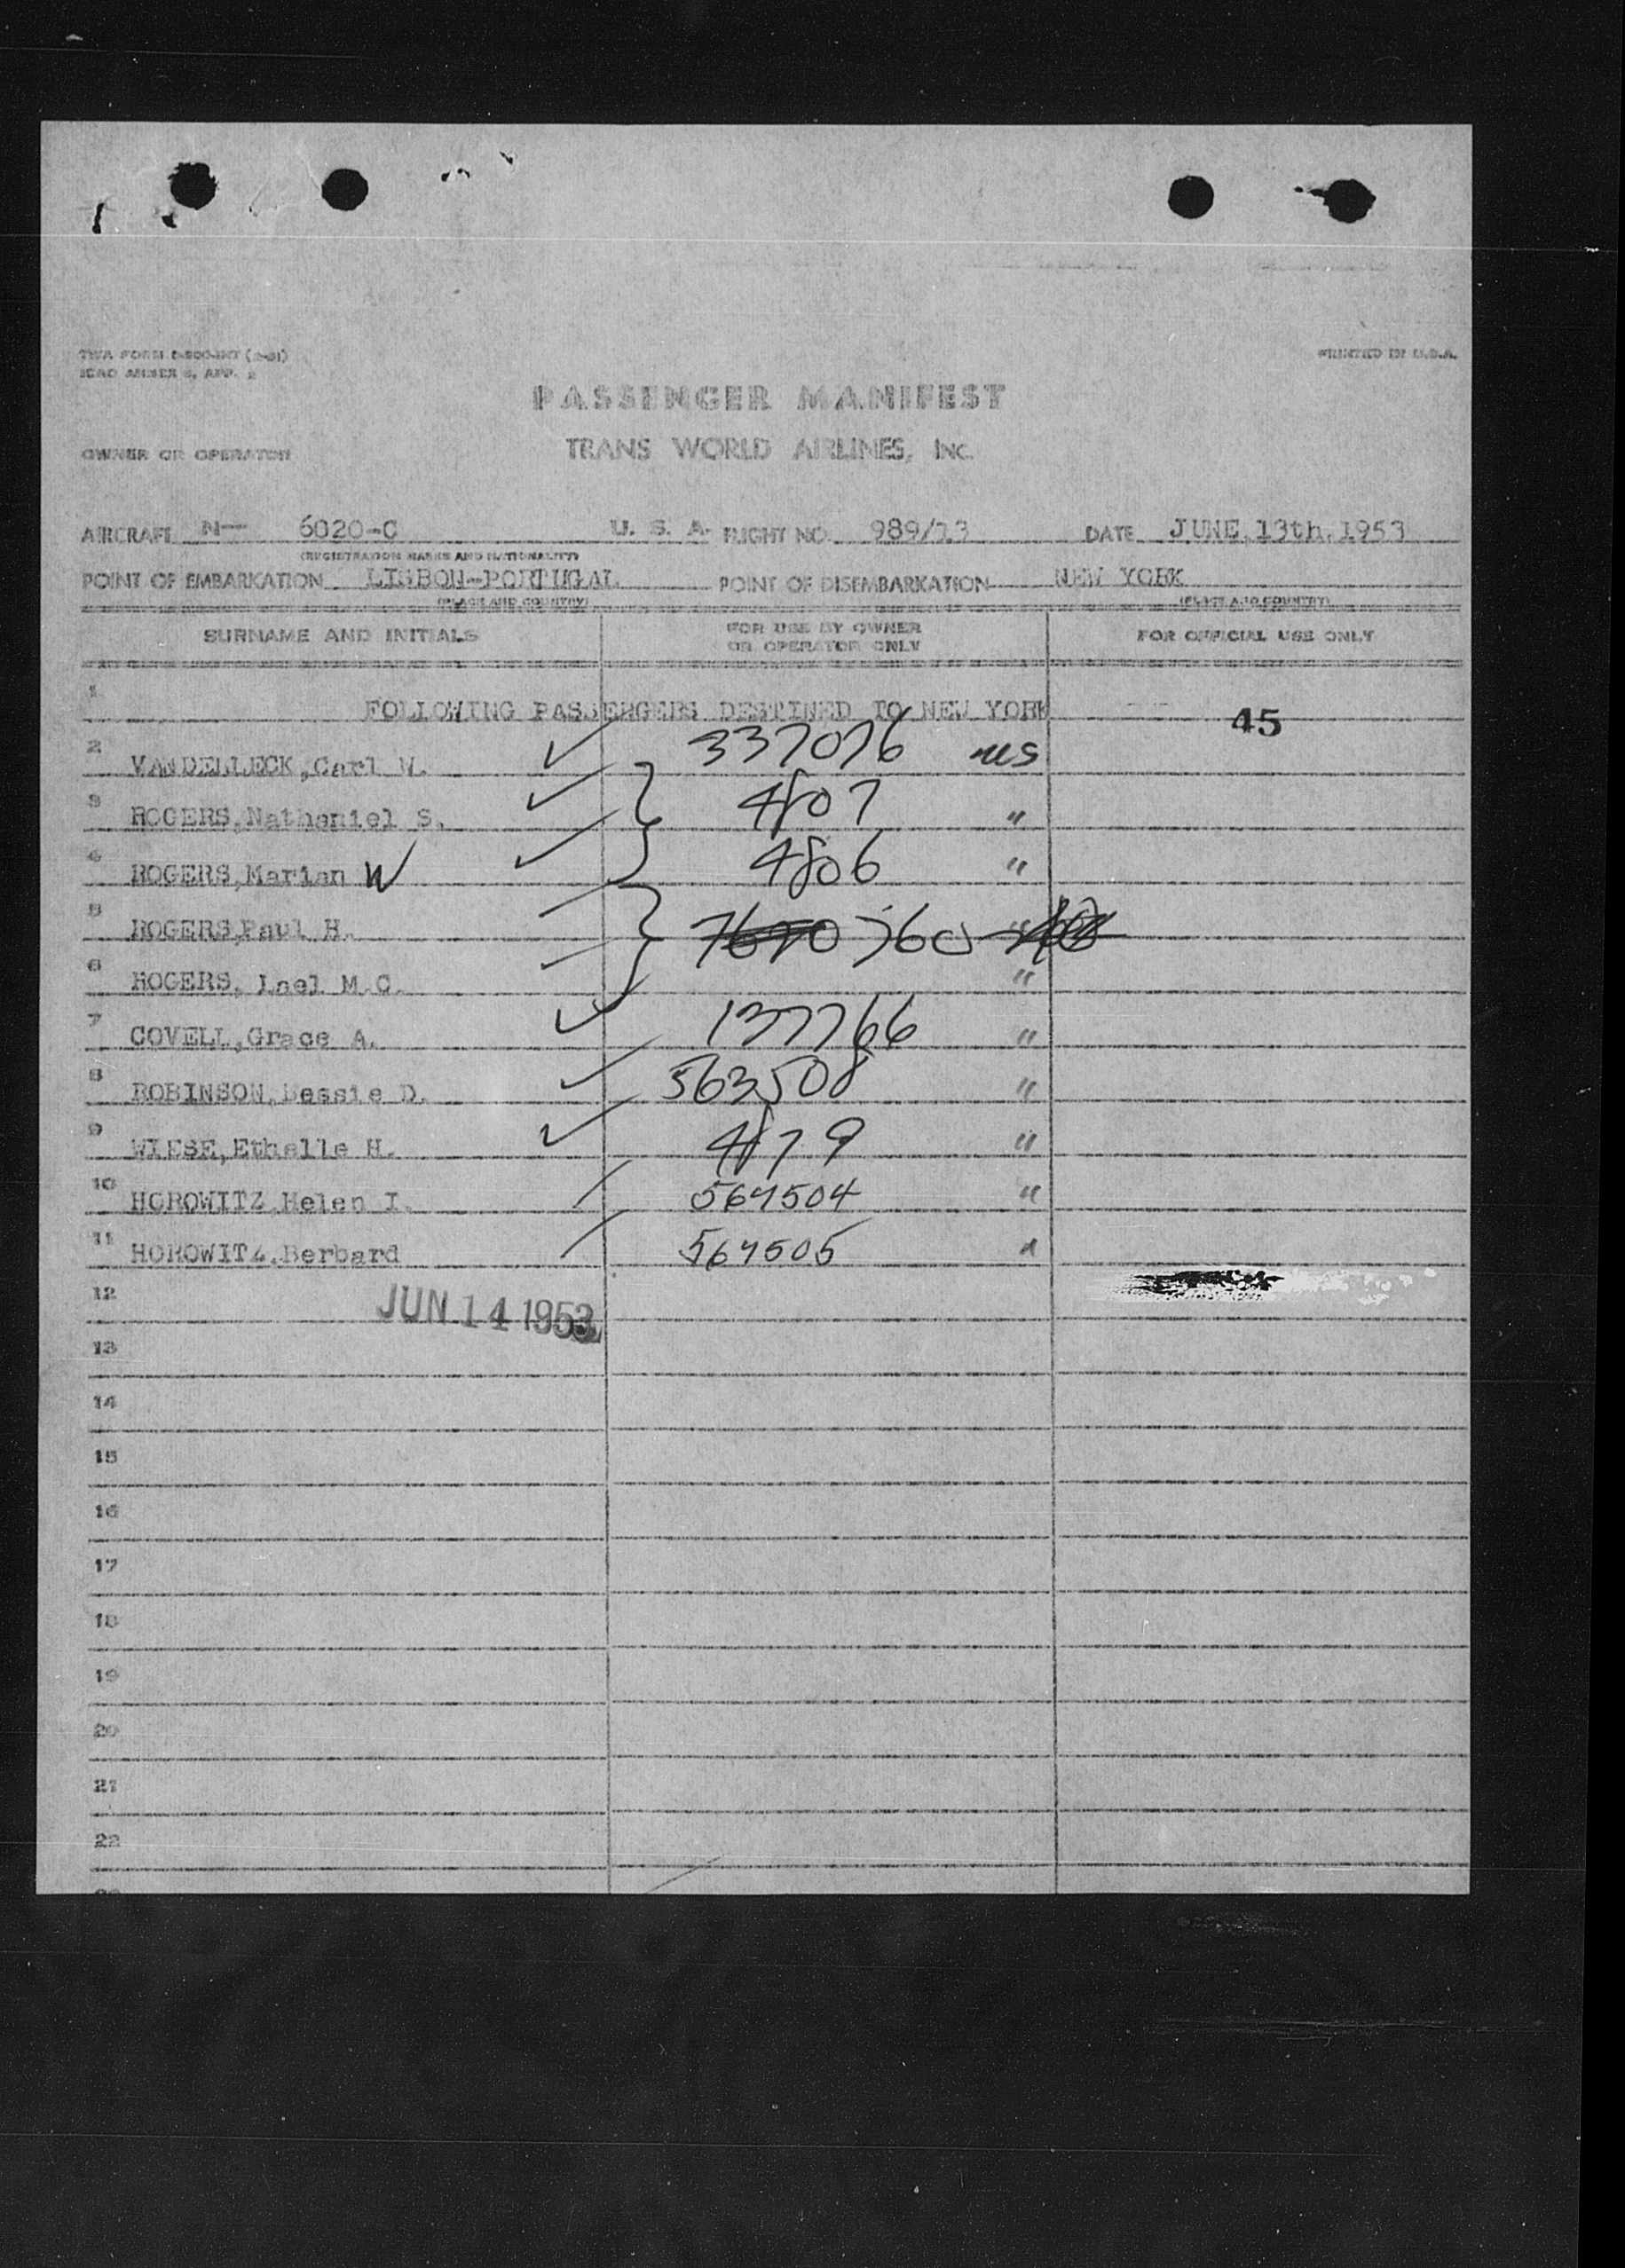 PRINTED IN U.S.A.
PASSENGER MANIFEST
OWNER OR OPERATOR TRANS WORLD AIRLINES, INC.
AIRCRAFT N- 6020-C U. S. A. FLIGHT NO. 989/13 DATE JUNE,13th,1953
(REGISTRATION MARKS AND NATIONALITY)
POINT OF EMBARKATION LISBON-PORTUGAL POINT OF DISEMBARKATION NEW YORK
(PLACE AND COUNTRY) (PLACE AND COUNTRY)
SURNAME AND INITIALS FOR USE BY OWNER OR OPERATOR ONLY FOR OFFICIAL USE ONLY
1 FOLLOWING PASSERGERS DESTINED TO NEW YORK 45
2 Carl 337076 US
3 ROGERS,Nathaniel S. 4807 "
4 ROGERS,Marian W 4806 "
5 ROGERS,Paul H. 360
6 ROGERS, Lael M.C. "
7 COVELL,Grace A. 137766 "
8 ROBINSON,Bessie D. 563508 "
9 WIESE,Ethelle H. 4879 "
10 HOROWITZ,Helen I. 564504 "
11 HOROWITZ,Berbard 564505 "
12 JUN 14 1953
13
14
15
16
17
18
19
20
21
22